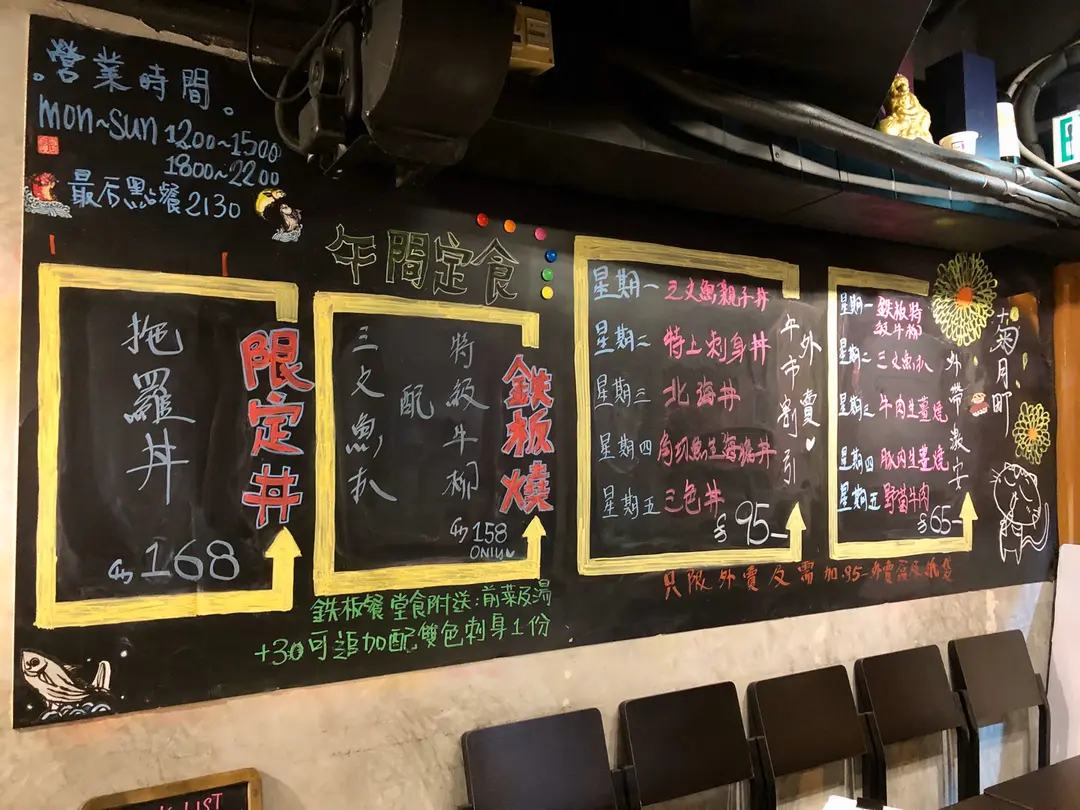 營業時間
mon~sun 1200~1500
1800~2200
最后點餐2130
午間定食
拖羅丼
限定丼
$168
三文魚扒
配
特級牛柳
鉄板燒
$158
ONLY
鉄板餐堂食附送:前菜及湯
+30可追加配雙色刺身1份
星期一 三文魚親子丼
星期二 特上刺身丼
星期三 北海丼
星期四
星期五 三色丼
外賣
午市割引
$95-
星期一 鉄板特級牛柳
星期二 三文魚扒
星期三 牛肉生薑燒
星期四 豚肉生薑燒
星期五 野菌牛肉
外帶
$65-
只限外賣及需加
菊月町
LIST